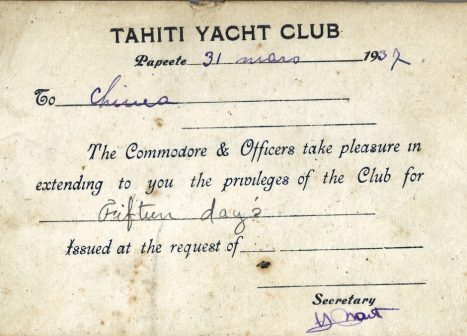 TAHITI YACHT CLUB
Papeete 31 mars 1937
To
The Commodore & Officers take pleasure in
extending to you the privileges of the Club for
Fifteen day's
Issued at the request of
Secretary